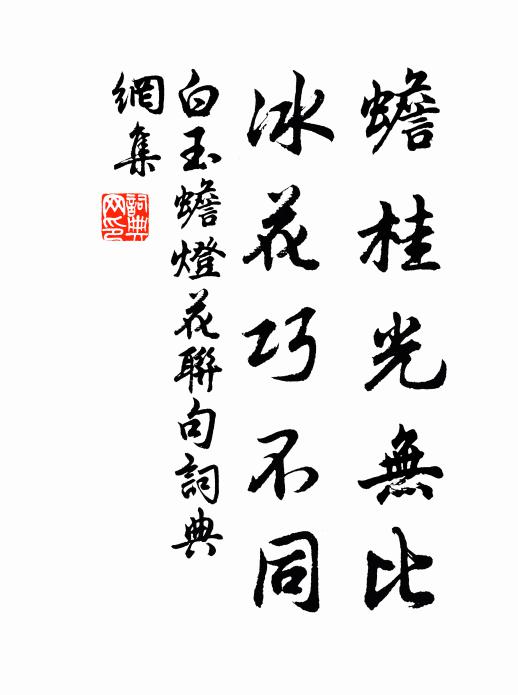 蟾桂光無比
冰花巧不同
白玉蟾燈花聯句詞典
網集
詞典
网印